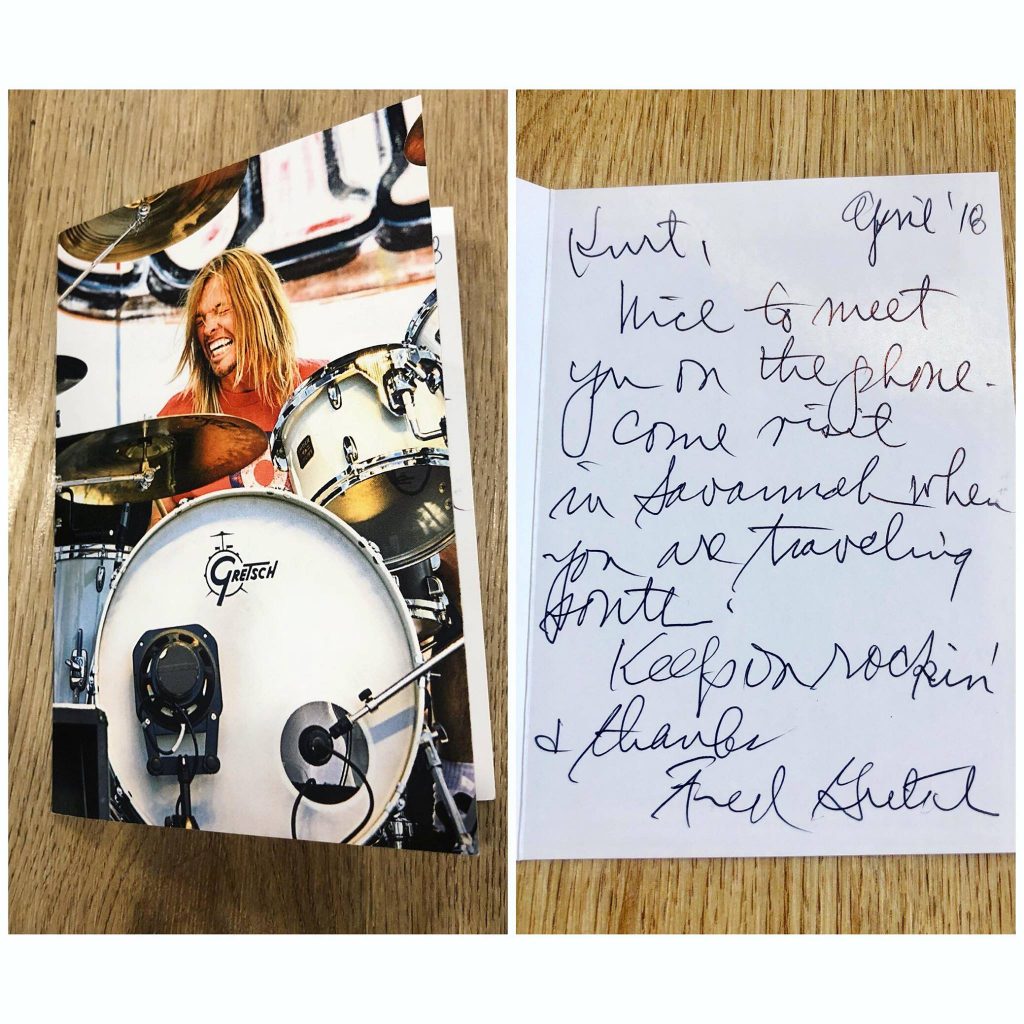 GRETSCH
April '18
Kurt,
Nice to meet
you on the phone.
Come visit
in Savannah when
you are traveling
South.
Keep on rockin'
& thanks
Fred Gretsch